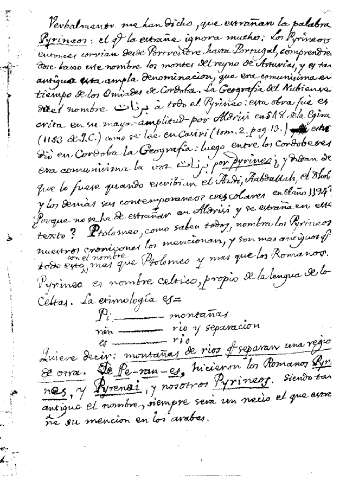 Verbalmente me han dicho, que estrañan la palabra
Pyrineos: el q.e la estrañe ignora mucho; Los Pyrineos
entonces corrian desde Portvendre hasta Portugal, comprendien
dose baxo este nombre los montes del reyno de Asturias, y es tan
antigua esta amplia denominacion, que era comunisima en
tiempo de los Omiades de Cordoba. La Geografia del Nubiense
da el nombre برنات à todo el Pyrineo: esta obra fue es
crita en su mayor amplitud por Aldrisi en 548 de la Egira
(1153 de J.C.) como se lee en Casiri (tom. 2. pag. 13.)
dió en Cordoba la Geografia: luego entre los Cordobeses
era comunisima la voz برنات por pyrineo; y dudan de
que lo fuese quando escribian el Abdallah, el
y los demas sus contemporaneos
Porque no se ha de estrañar en Aldrisi y se estraña en este
texto? Ptolomeo, como saben todos, nombra los Pyrineos
nuestros cronicones los mencionan, y son mas antiguos q.e
todo esto, con el nombre mas que Ptolomeo y mas que los Romanos.
Pyrineo es nombre Celtico, propio de la lengua de los
Celtas. La etimología es =
Pi: —— montañas
rän —— rio y separacion
es —— rio
Quiere decir: montañas de rios q.e separan una region
de otra. De Pe-ran-es, hicieron los Romanos Pyr
nes, y Pyrenei, y nosotros Pyrineos. siendo tan
antiguo el nombre, siempre será un necio el que estra
ñe su mencion en los arabes.